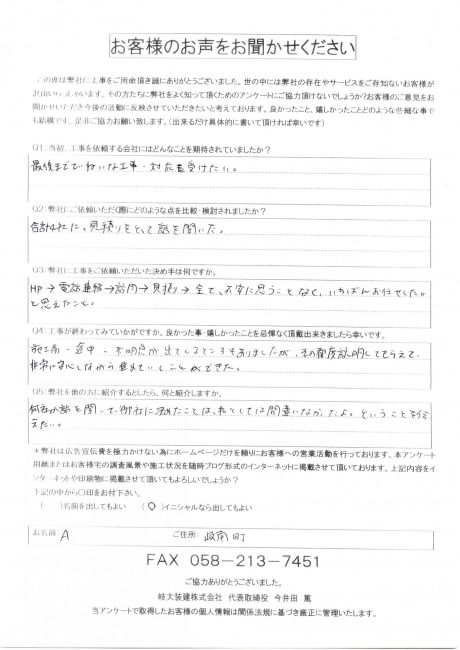 お客様のお声をお聞かせください
この度は弊社に工事をご用命頂き誠にありがとうございました。世の中には弊社の存在やサービスをご存知ないお客様が
沢山いらっしゃいます。その方たちに弊社をよく知って頂くためのアンケートにご協力頂けないでしょうか?お客様のご意見をお
聞かせいただき今後の活動に反映させていただきたいと考えております。良かったこと、嬉しかったことどのような些細な事で
も結構です。是非ご協力お願い致します。(出来るだけ具体的に書いて頂ければ幸いです)
Q1:当初、工事を依頼する会社にはどんなことを期待されていましたか?
最後までていねいな工事・対応を受けたい。
Q2:弊社にご依頼いただく際にどのような点を比較・検討されましたか?
合計4社に、見積りをとって話を聞いた。
Q3:弊社に工事をご依頼いただいた決め手は何ですか。
HP→電話連絡→訪問→見積り→全て、不安に思うことなく、いちばんお任せしたい
と思えたこと。
Q4:工事が終わってみていかがですか。良かった事・嬉しかったことを忌憚なく頂戴出来きましたら幸いです。
施工前・途中、不明点が出てくるところもありましたが、その都度説明してもらえて、
非常に安心しながら進めていくことができた。
Q5:弊社を他の方に紹介するとしたら、何と紹介しますか。
何社か話を聞いて、御社に決めたことは、私としては間違いなかったよ。ということを伝
えたい。
*弊社は広告宣伝費を極力かけない為にホームページだけを頼りにお客様への営業活動を行っております。本アンケート
用紙またはお客様宅の調査風景や施工状況を随時ブログ形式のインターネットに掲載させて頂いております。上記内容をイ
ンターネットや印刷物に掲載させて頂いてもよろしいでしょうか?
下記の中から〇印をお付下さい。
( )名前を出してもよい (〇)イニシャルなら出してもよい
お名前:A ご住所:岐南町
FAX 058-213-7451
ご協力ありがとうございました。
岐大装建株式会社 代表取締役 今井田 篤
当アンケートで取得したお客様の個人情報は関係法規に基づき厳正に管理いたします。